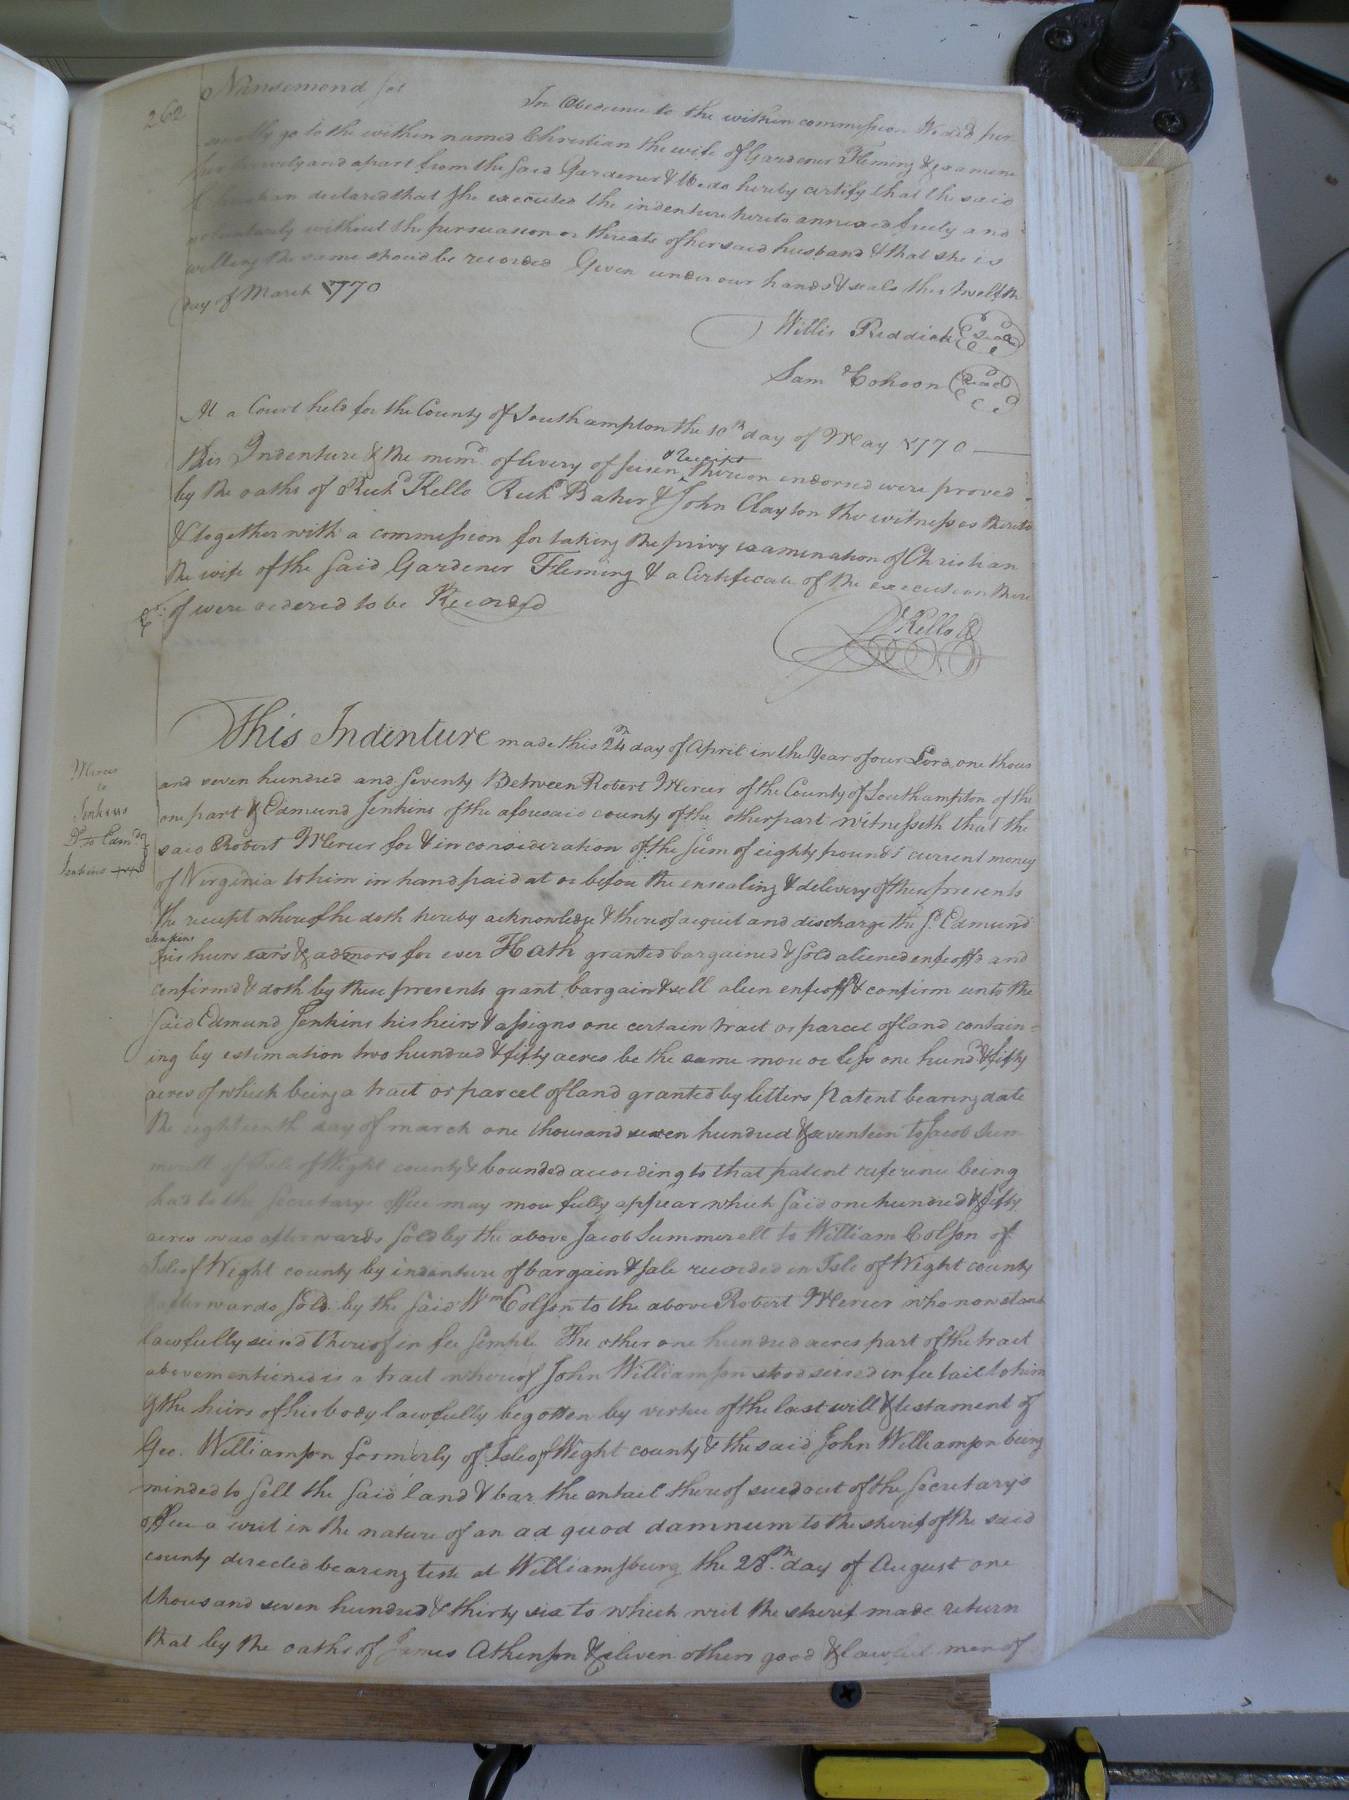 262
Nansemond sct
In Obedience to the within commission We did per
sonally go to the within named Christian the wife of Gardener Fleming & examine
her privily and apart from the said Gardener & We do hereby certify that the said
Christian declared that she executed the indenture hereto annexed freely and
voluntarily without the persuasion or threats of her said husband & that she is
willing the same should be recorded Given under our hands & seals this twelfth
day of March 1770
Willis Riddick Seal
Sam Cohoon Seal
At a Court held for the County of Southampton the 10th day of May 1770
this Indenture & the memd. of livery of seisen & receipt thereon indorsed were proved
by the oaths of Richd Kello Richd Baker & John Clayton the witnesses thereto
& together with a commission for taking the privy examination of Christian
the wife of the said Gardener Fleming & a Certificate of the execution there
of were ordered to be Recorded
Ex.
R Kello
This Indenture made this 24th day of April in the Year of our Lord one thous
and seven hundred and seventy Between Robert Mercer of the County of Southampton of the
Mercer
to
Jenkins
Dd. to Edmd.
Jenkins
one part & Edmund Jenkins of the aforesaid county of the other part Witnesseth that the
said Robert Mercer for & in consideration of the sum of eighty pounds current money
of Virginia to him in hand paid at or before the ensealing & delivery of these presents
the receipt whereof he doth hereby acknowledge & thereof acquit and discharge the sd. Edmund
Jenkins
his heirs exrs & admors for ever Hath granted bargained & sold aliened enfeoffd and
confirmd & doth by these presents grant bargain & sell alien enfeoff & confirm unto the
said Edmund Jenkins his heirs & assigns one certain tract or parcel of land contain=
ing by estimation two hundred & fifty acres be the same more or less one hund & fifty
acres of which being a tract or parcel of land granted by letters patent bearing date
the eighteenth day of march one thousand seven hundred & seventeen to Jacob Sum
merell of Isle of Wight county & bounded according to that patent reference being
had to the secretarys office may more fully appear which said one hundred & fifty
acres was afterwards sold by the above Jacob Summerell to William Colson of
Isle of Wight county by indenture of bargain & sale recorded in Isle of Wight county
afterwards sold by the said Wm Colson to the above Robert Mercer who now stands
lawfully seized thereof in fee simple The other one hundred acres part of the tract
abovementioned is a tract whereof John Williamson stood seized in fee tail to him
& the heirs of his body lawfully begotten by virtue of the last will & testament of
Geo. Williamson formerly of Isle of Wight county & the said John Williamson being
minded to sell the said land & bar the entail thereof sued out of the secretarys
office a writ in the nature of an ad quod damnum to the sherif of the said
county directed bearing teste at Williamsburg the 28th day of August one
thousand seven hundred & thirty six to which writ the sherif made return
that by the oaths of James Atkinson & eleven others good & lawful men of